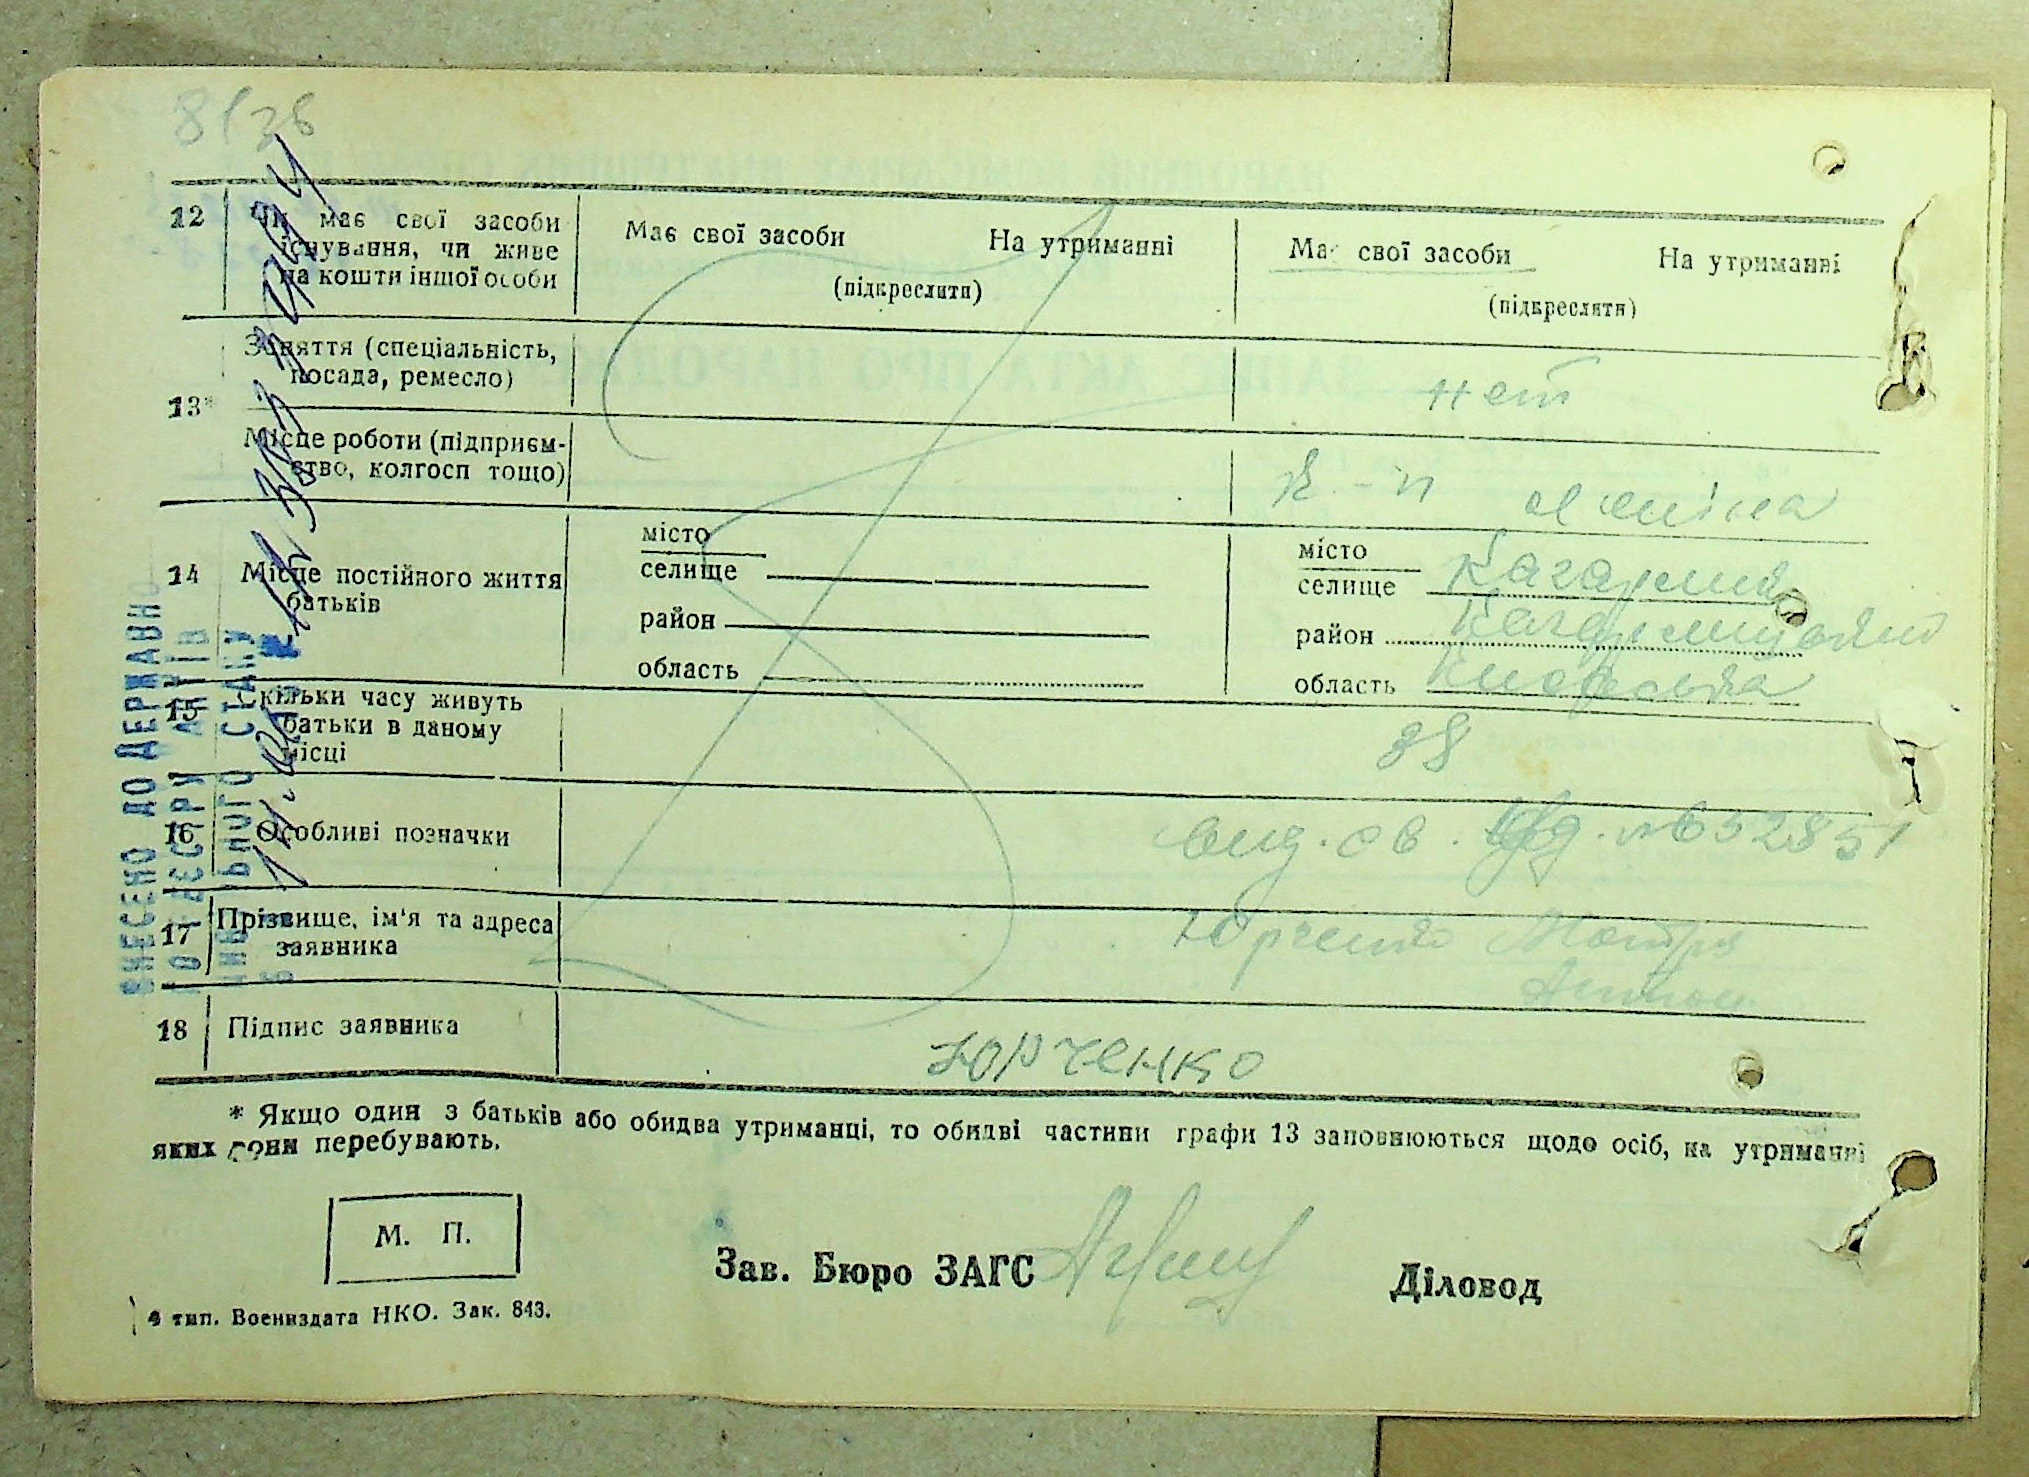 8/38
12 Чи має свої засоби існування, чи живе на кошти іншої особи
Має свої засоби На утриманні
(підкреслити)
Має свої засоби На утриманні
(підкреслити)
13* Заняття (спеціальність, посада, ремесло)
нет
Місце роботи (підприємство, колгосп тощо)
к-п Леніна
14 Місце постійного життя батьків
місто
селище
район
область
місто
селище Кагарлик
район Кагарлицький
область Київська
15 Скільки часу живуть батьки в даному місці
38
16 Особливі позначки
вид. св. №652851
17 Прізвище, ім'я та адреса заявника
Юрченко Мотря
18 Підпис заявника
ЮРЧЕНКО
* Якщо один з батьків або обидва утриманці, то обидві частини графи 13 заповнюються щодо осіб, на утриманні
яких вони перебувають.
М. П.
Зав. Бюро ЗАГС
Діловод
4 тип. Воениздата НКО. Зак. 843.
ВНЕСЕНО ДО ДЕРЖАВНОГО
РЕЄСТРУ АКТІВ
ЦИВІЛЬНОГО СТАНУ